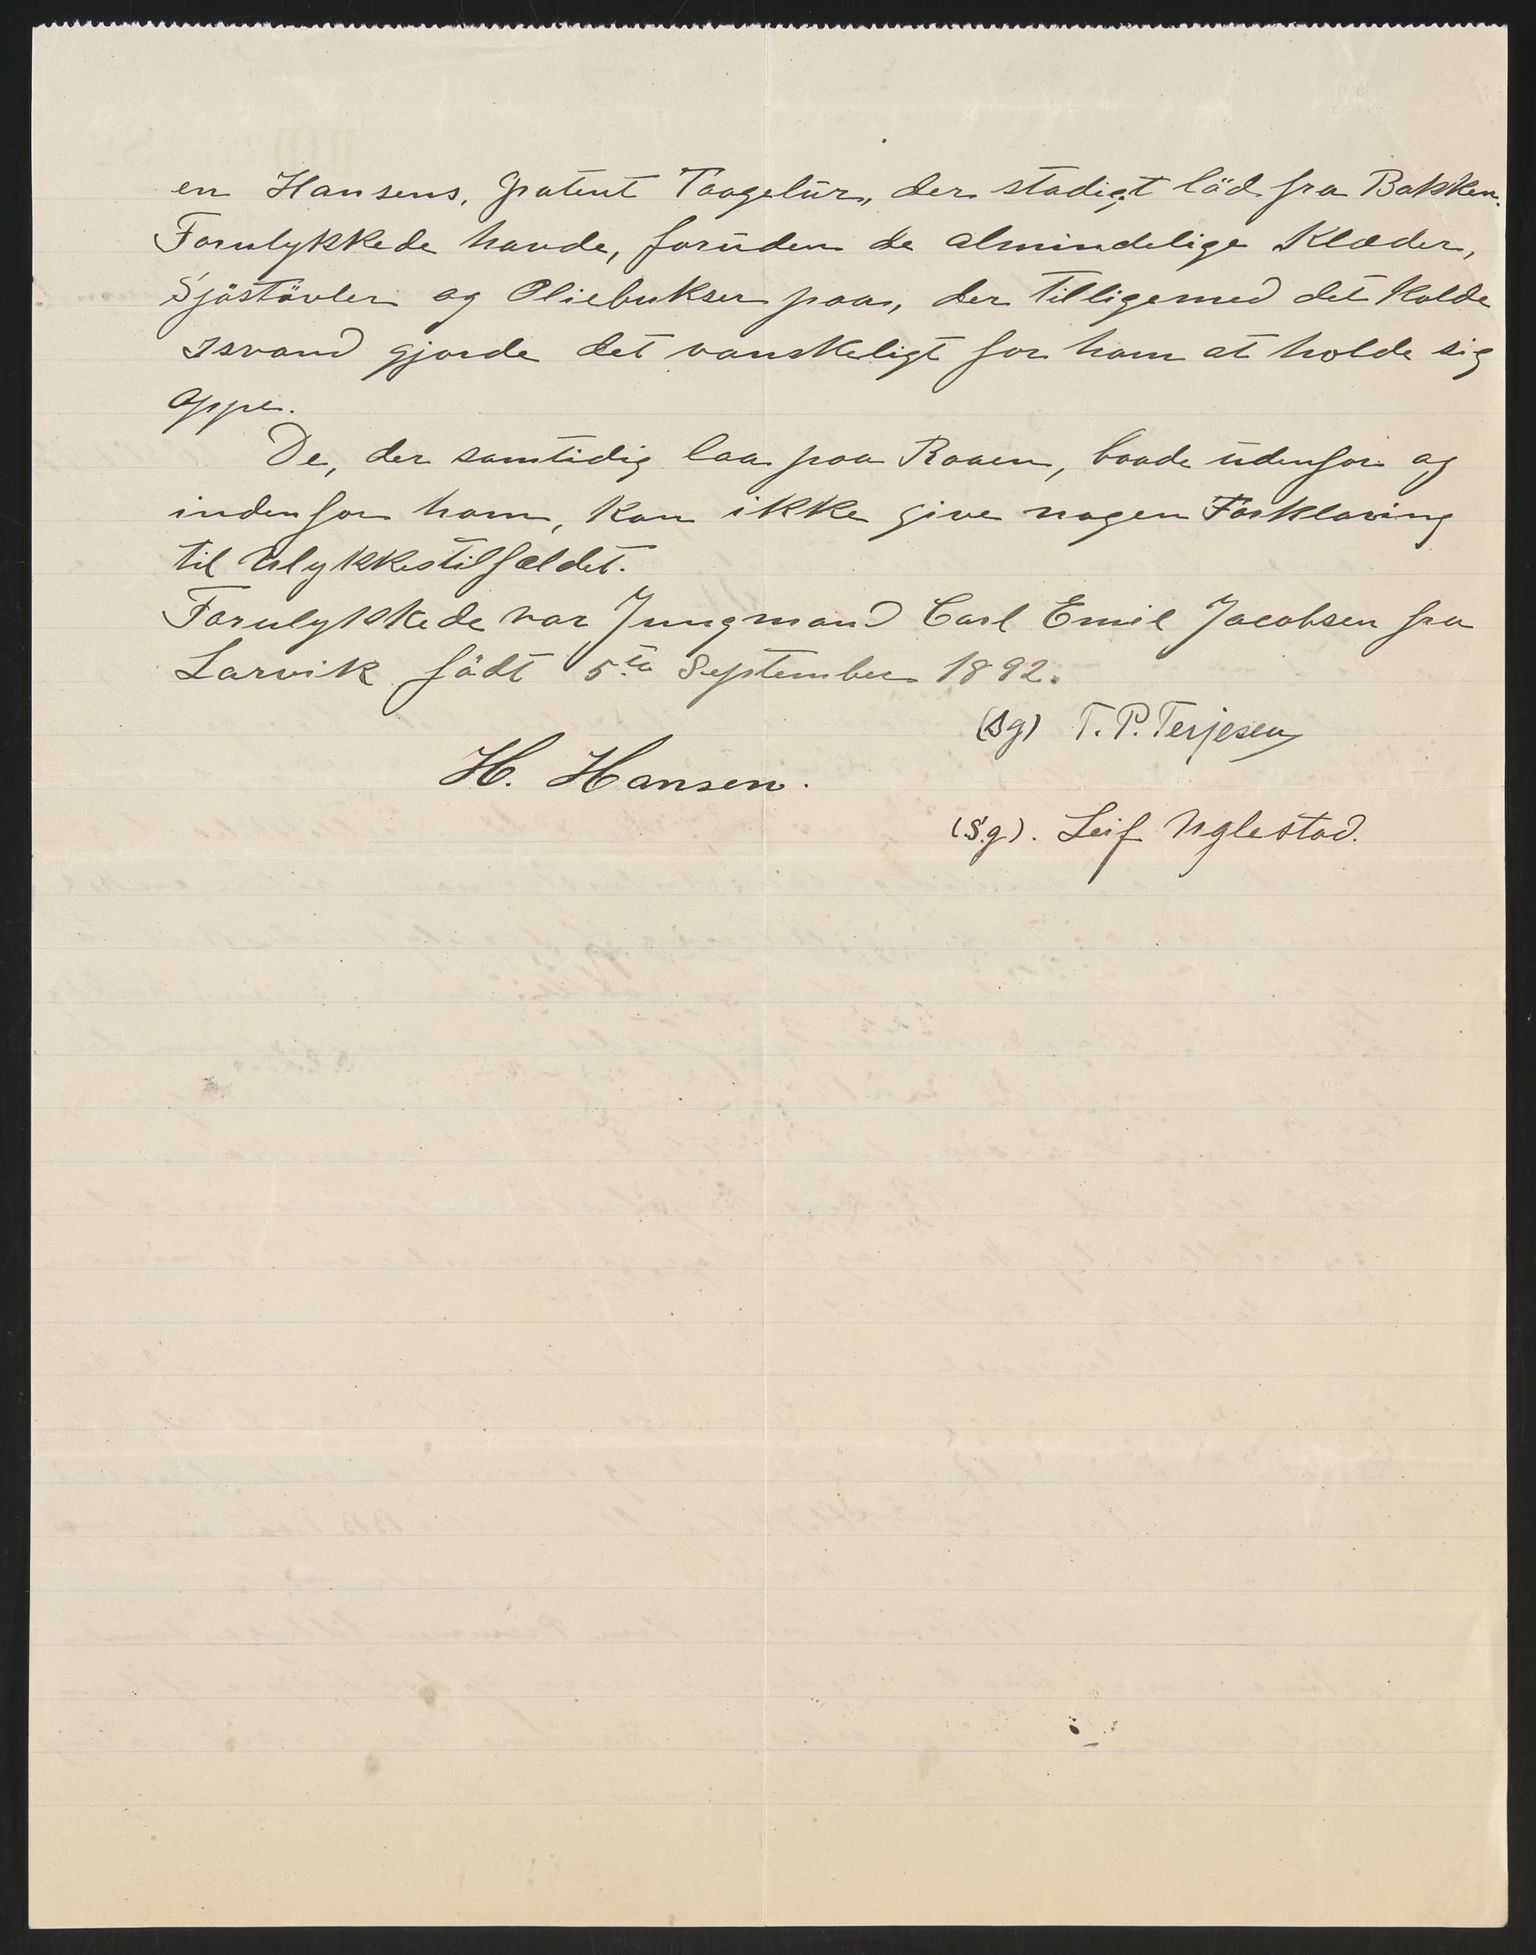 en Hansens, patent Taagelur, der stadigt löd fra Bakken.
Forulykkede havde, foruden de almindelige Klæder,
Sjöstövler og Oliebukser paa, der tilligemed det kolde
Isvand gjorde det vanskeligt for ham at holde sig
oppe.
De, der samtidig laa paa Raaen, baade udenfor og
indenfor ham, kan ikke give nogen Forklaring
til Ulykkestilfældet.
Forulykkede var Jungmand Carl Emil Jacobsen fra
Larvik födt 5te September 1892.
(sg) T. P. Terjesen
H. Hansen.
(s.g). Leif Uglestad.